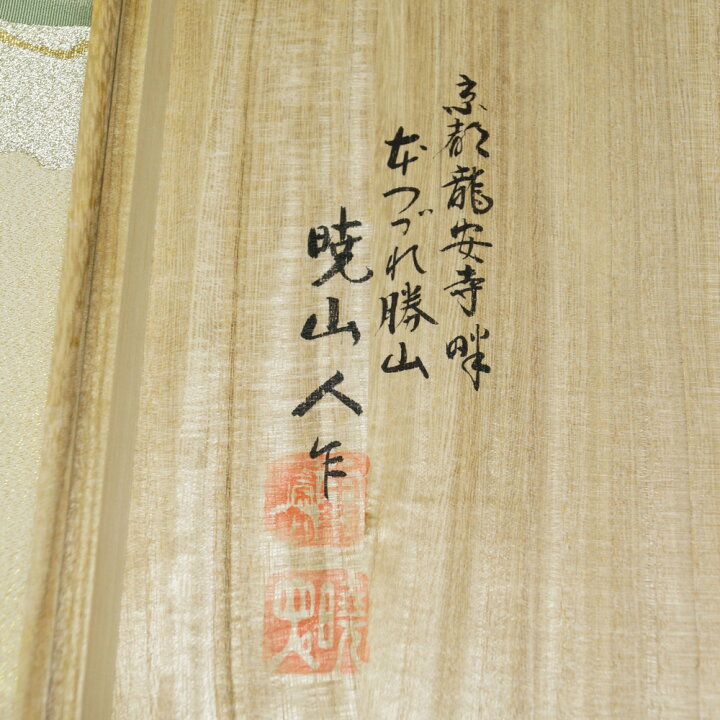 京都龍安寺畔
本つづれ勝山
暁山人作